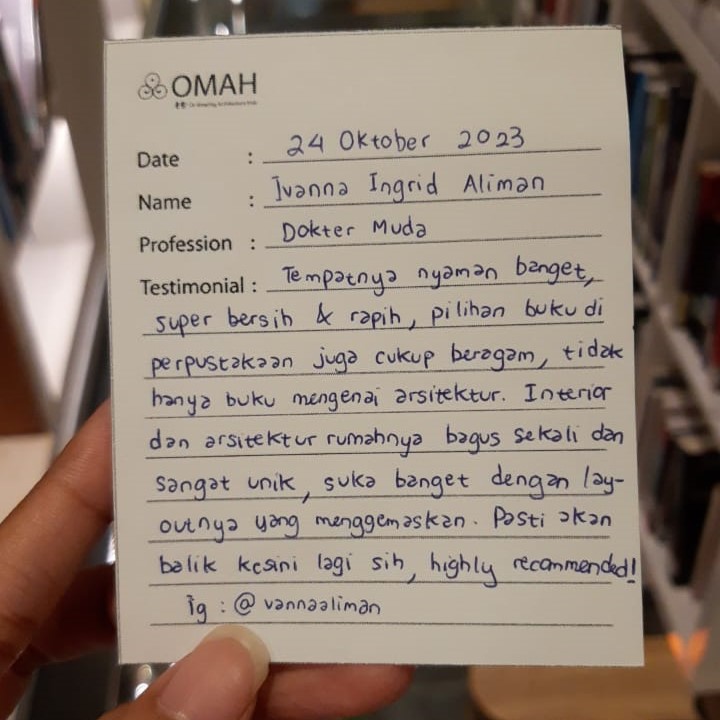 OMAH
Date : 24 Oktober 2023
Name : Ivanna Ingrid Aliman
Profession : Dokter Muda
Testimonial : Tempatnya nyaman banget,
super bersih & rapih, pilihan buku di
perpustakaan juga cukup beragam, tidak
hanya buku mengenai arsitektur. Interior
dan arsitektur rumahnya bagus sekali dan
sangat unik, suka banget dengan lay-
outnya yang menggemaskan. Pasti akan
balik kesini lagi sih, highly recommended!
ig : @vannaaliman